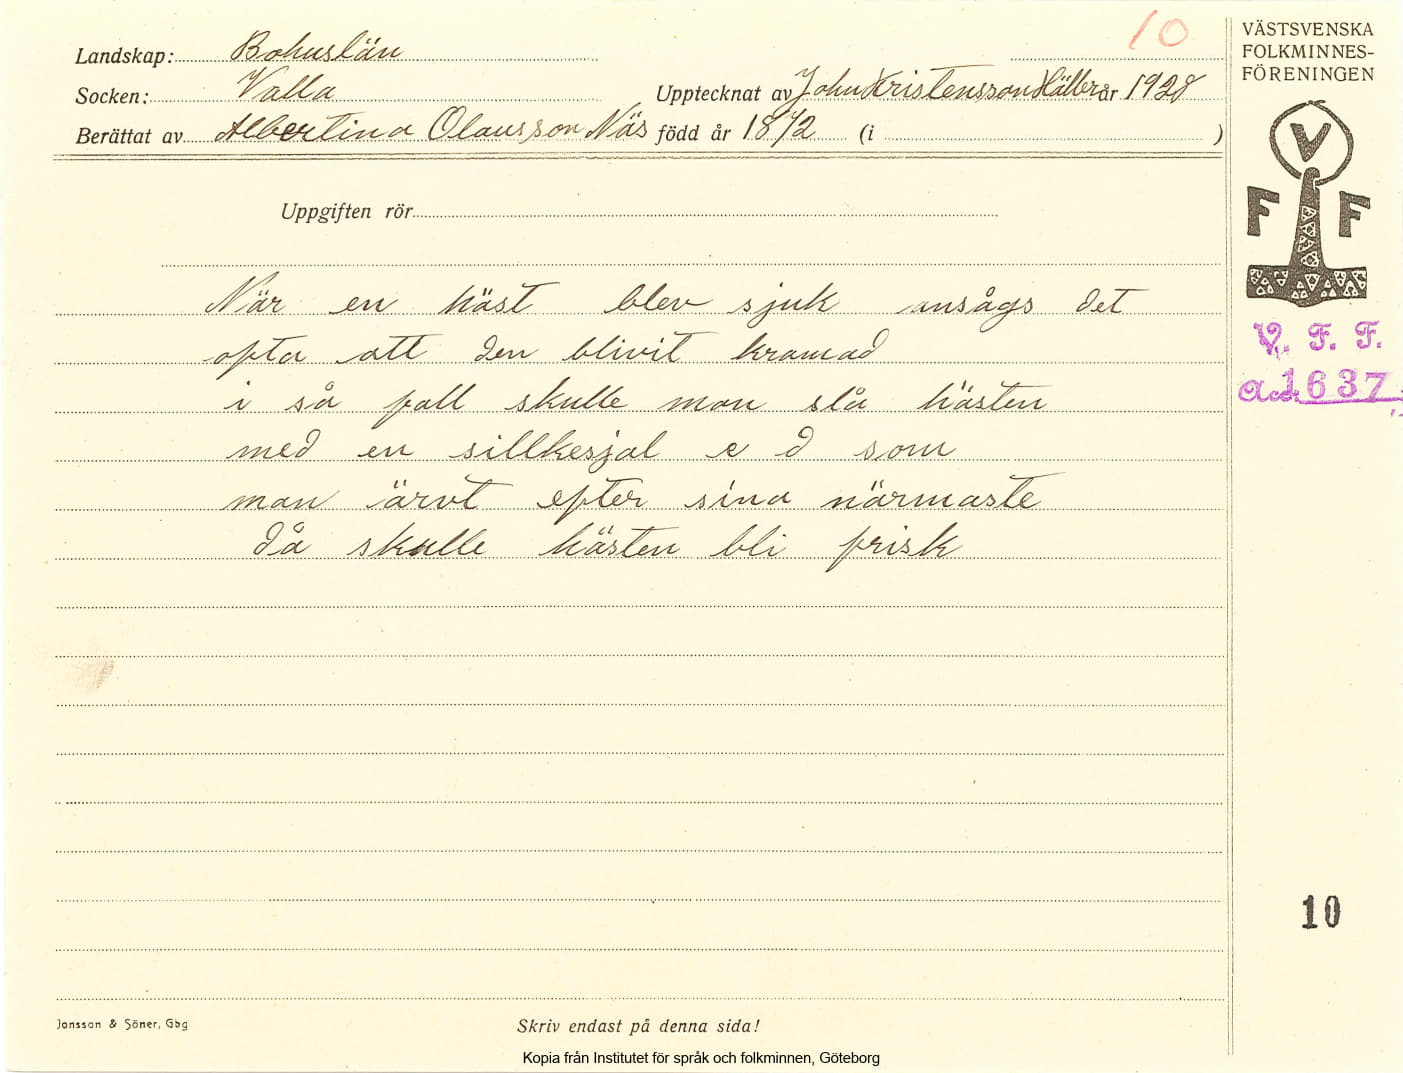 10
Landskap: Bohuslän
Socken: Valla
Upptecknat av John Kristensson Häller år 1928
Berättat av Albertina Olausson Näs född år 1872 (i )
VÄSTSVENSKA
FOLKMINNES-
FÖRENINGEN
V
F F
V. F. F.
Acc. 1637
Uppgiften rör
När en häst blev sjuk ansågs det
ofta att den blivit kramad
i så fall skulle man slå hästen
med en sillkesjal e d som
man ärvt efter sina närmaste
då skulle hästen bli frisk
10
Jonsson & Söner, Gbg
Skriv endast på denna sida!
Kopia från Institutet för språk och folkminnen, Göteborg